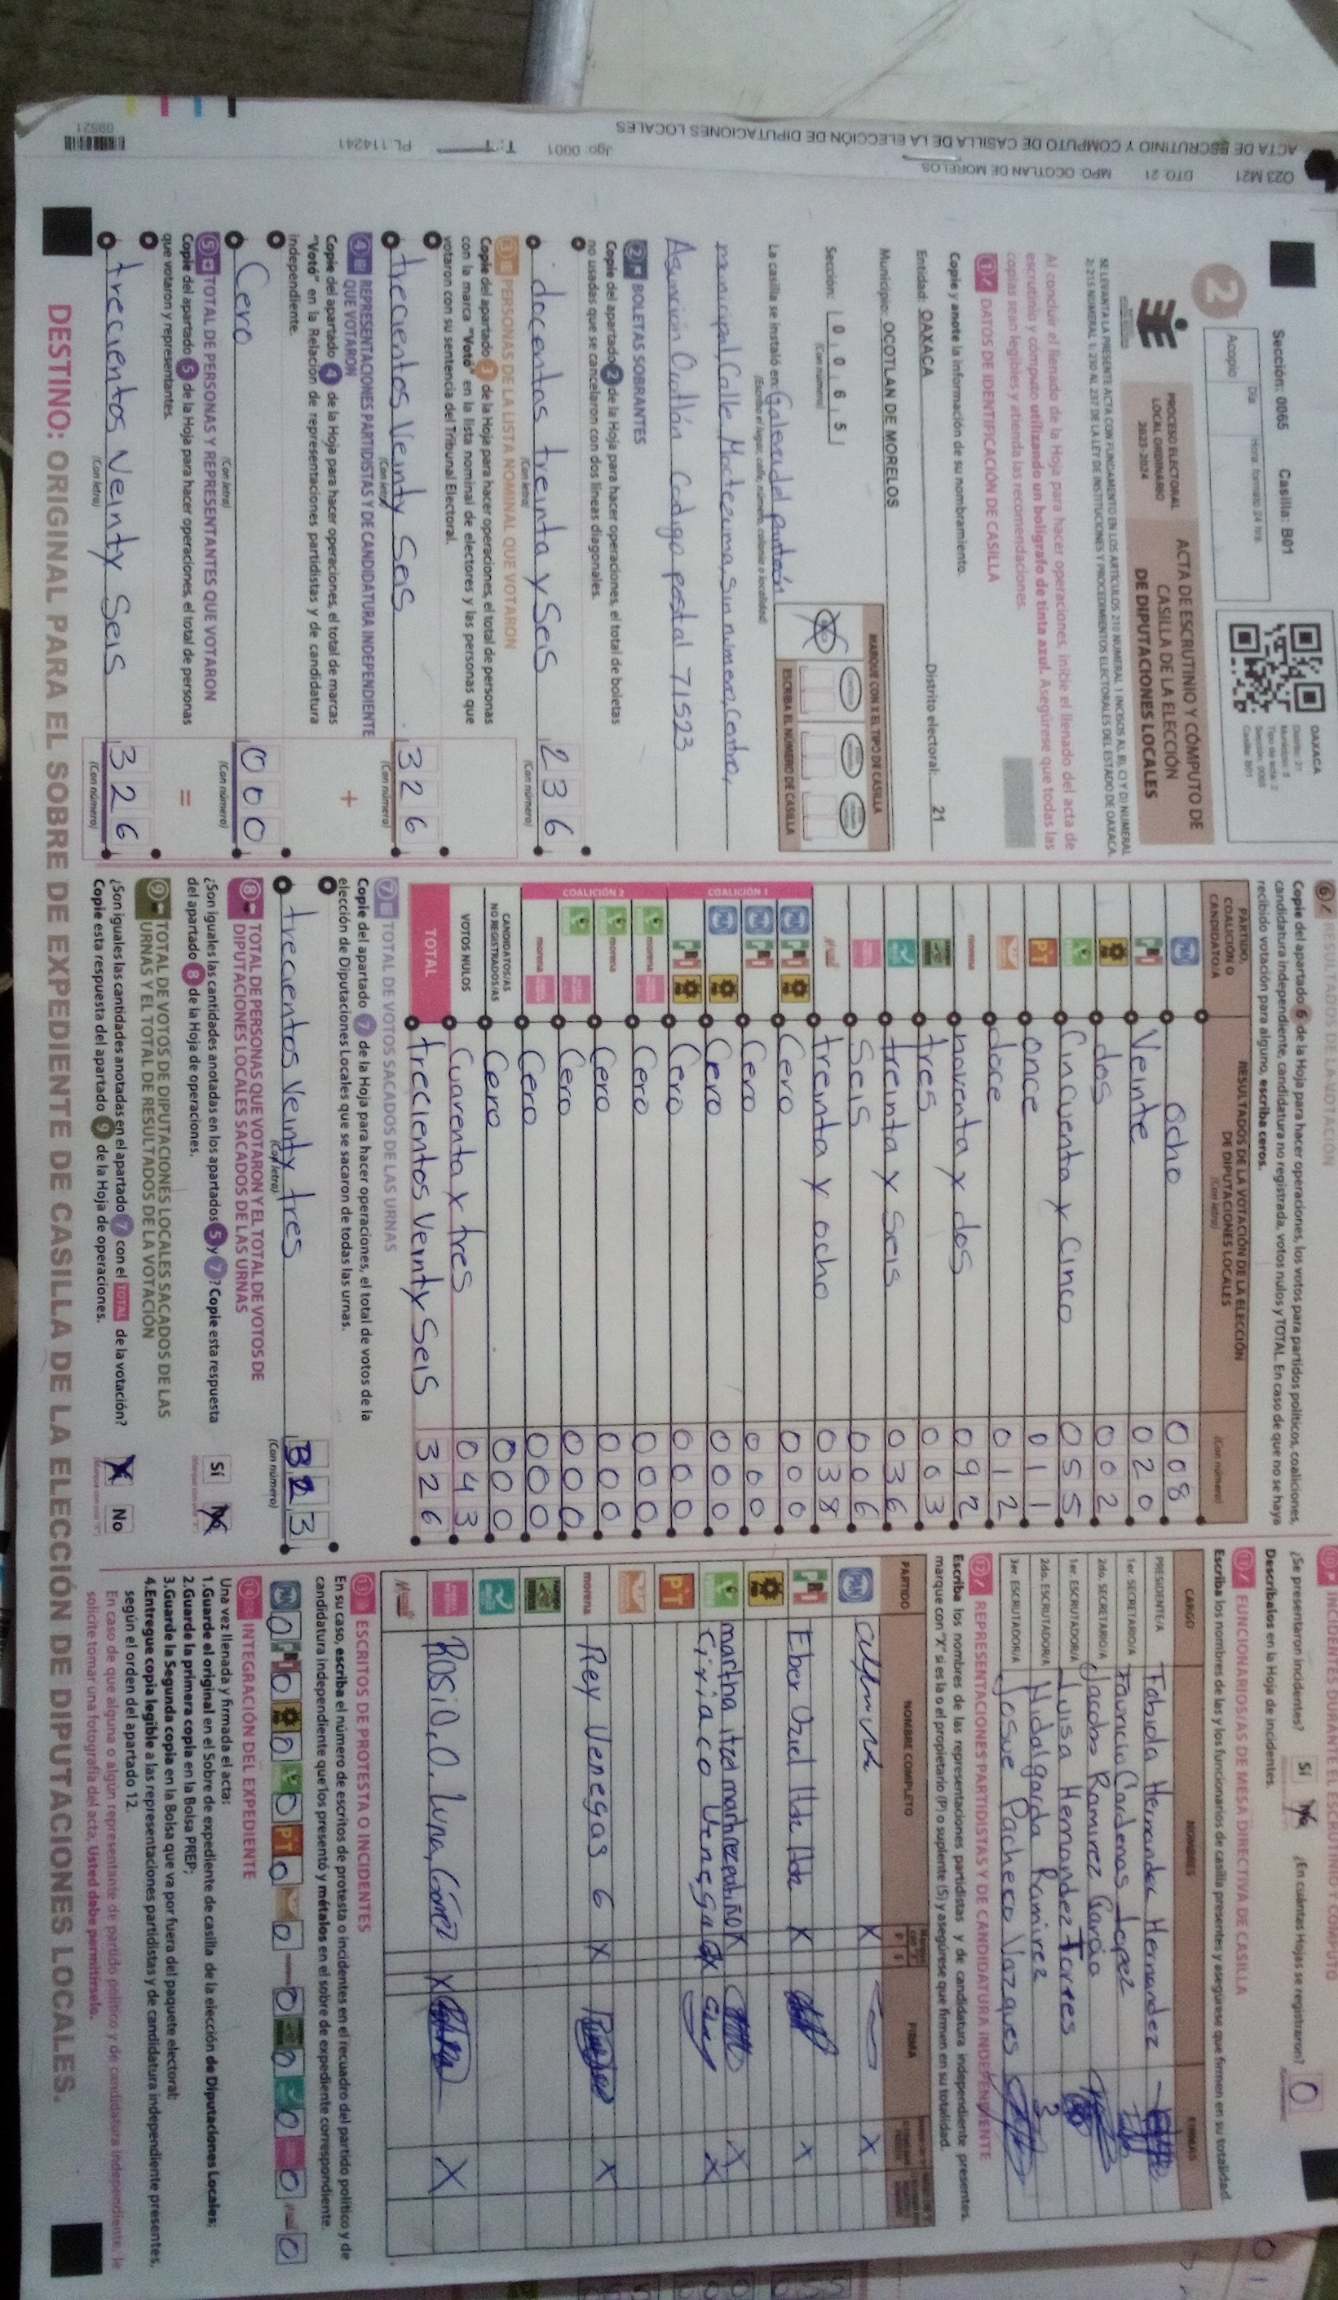 Q23 M21 DTO: 21 MPO: OCOTLAN DE MORELOS
ACTA DE ESCRUTINIO Y CÓMPUTO DE CASILLA DE LA ELECCIÓN DE DIPUTACIONES LOCALES
Jgo: 0001
PL 114241
09521
Sección: 0065 Casilla: B01
2
Acopio
Día
Hora: formato 24 hrs.
OAXACA
PROCESO ELECTORAL
LOCAL ORDINARIO
2023-2024
ACTA DE ESCRUTINIO Y CÓMPUTO DE
CASILLA DE LA ELECCIÓN
DE DIPUTACIONES LOCALES
Al concluir el llenado de la Hoja para hacer operaciones, inicie el llenado del acta de
escrutinio y cómputo utilizando un bolígrafo de tinta azul. Asegúrese que todas las
copias sean legibles y atienda las recomendaciones.
1 DATOS DE IDENTIFICACIÓN DE CASILLA
Copie y anote la información de su nombramiento.
Entidad: OAXACA Distrito electoral: 21
Municipio: OCOTLAN DE MORELOS
Sección: 0 0 6 5
(Con número)
MARQUE CON X EL TIPO DE CASILLA
ESCRIBA EL NÚMERO DE CASILLA
La casilla se instaló en: Galera del panteón
(Escriba el lugar, calle, número, colonia o localidad)
municipal, Calle Moctezuma, Sin numero, Centro,
Asunción Ocotlán Codigo postal 71523
2 BOLETAS SOBRANTES
Copie del apartado 2 de la Hoja para hacer operaciones, el total de boletas
no usadas que se cancelaron con dos líneas diagonales.
docentos treinta y seis 236
(Con letra) (Con número)
3 PERSONAS DE LA LISTA NOMINAL QUE VOTARON
Copie del apartado 3 de la Hoja para hacer operaciones, el total de personas
con la marca "Votó" en la lista nominal de electores y las personas que
votaron con su sentencia del Tribunal Electoral.
trecientos Veinty Seis 326
(Con letra) (Con número)
4 REPRESENTACIONES PARTIDISTAS Y DE CANDIDATURA INDEPENDIENTE
QUE VOTARON
Copie del apartado 4 de la Hoja para hacer operaciones, el total de marcas
"Votó" en la Relación de representaciones partidistas y de candidatura
independiente.
+
Cero 000
(Con letra) (Con número)
5 TOTAL DE PERSONAS Y REPRESENTANTES QUE VOTARON
Copie del apartado 5 de la Hoja para hacer operaciones, el total de personas
que votaron y representantes.
=
trecientos Veinty Seis 326
(Con letra) (Con número)
6 RESULTADOS DE LA VOTACIÓN
Copie del apartado 6 de la Hoja para hacer operaciones, los votos para partidos políticos, coaliciones,
candidatura independiente, candidatura no registrada, votos nulos y TOTAL. En caso de que no se haya
recibido votación para alguno, escriba ceros.
PARTIDO, COALICIÓN O CANDIDATO/A
RESULTADOS DE LA VOTACIÓN DE LA ELECCIÓN DE DIPUTACIONES LOCALES
(Con letra) (Con número)
PAN Ocho 008
PRI Veinte 020
PRD dos 002
VERDE Cincuenta y Cinco 055
PT once 011
doce 012
morena noventa y dos 092
tres 003
treinta y seis 036
Seis 006
treinta y ocho 038
COALICIÓN 1
Cero 000
Cero 000
Cero 000
Cero 000
COALICIÓN 2
Cero 000
Cero 000
Cero 000
Cero 000
CANDIDATOS/AS NO REGISTRADOS/AS Cero 000
VOTOS NULOS Cuarenta y tres 043
TOTAL trecientos Veinty Seis 326
7 TOTAL DE VOTOS SACADOS DE LAS URNAS
Copie del apartado 7 de la Hoja para hacer operaciones, el total de votos de la
elección de Diputaciones Locales que se sacaron de todas las urnas.
trecientos Veinty tres 323
(Con letra) (Con número)
8 TOTAL DE PERSONAS QUE VOTARON Y EL TOTAL DE VOTOS DE
DIPUTACIONES LOCALES SACADOS DE LAS URNAS
¿Son iguales las cantidades anotadas en los apartados 5 y 7? Copie esta respuesta
del apartado 8 de la Hoja de operaciones.
Sí No
9 TOTAL DE VOTOS DE DIPUTACIONES LOCALES SACADOS DE LAS
URNAS Y EL TOTAL DE RESULTADOS DE LA VOTACIÓN
¿Son iguales las cantidades anotadas en el apartado 7 con el TOTAL de la votación?
Copie esta respuesta del apartado 9 de la Hoja de operaciones.
No
10 INCIDENTES DURANTE EL ESCRUTINIO Y CÓMPUTO
¿Se presentaron incidentes? Sí No ¿En cuántas Hojas se registraron? 0
Descríbalos en la Hoja de incidentes.
11 FUNCIONARIOS/AS DE MESA DIRECTIVA DE CASILLA
Escriba los nombres de las y los funcionarios de casilla presentes y asegúrese que firmen en su totalidad.
CARGO NOMBRES FIRMAS
PRESIDENTE/A Fabiola Hernandez Hernandez
1er. SECRETARIO/A Francio Cardenas Lopez
2do. SECRETARIO/A Jacobo Ramirez Garcia
1er. ESCRUTADOR/A Luisa Hernandez Torres
2do. ESCRUTADOR/A Hidalgarda Ramirez
3er. ESCRUTADOR/A Josue Pacheco Vazques
12 REPRESENTACIONES PARTIDISTAS Y DE CANDIDATURA INDEPENDIENTE
Escriba los nombres de las representaciones partidistas y de candidatura independiente presentes,
marque con "X" si es la o el propietario (P) o suplente (S) y asegúrese que firmen en su totalidad.
PARTIDO NOMBRE COMPLETO P S FIRMA
PAN X X
PRI Eber Uziel X X
martha itzel X X
Ciriaco Venegas X X
PT
morena Rey Venegas G X X
Rosi O. Luna Gómez X X
13 ESCRITOS DE PROTESTA O INCIDENTES
En su caso, escriba el número de escritos de protesta o incidentes en el recuadro del partido político y de
candidatura independiente que los presentó y métalos en el sobre de expediente correspondiente.
0 0 0 0 0 0 0 0 0 0 0
14 INTEGRACIÓN DEL EXPEDIENTE
Una vez llenada y firmada el acta:
1.Guarde el original en el Sobre de expediente de casilla de la elección de Diputaciones Locales;
2.Guarde la primera copia en la Bolsa PREP;
3.Guarde la Segunda copia en la Bolsa que va por fuera del paquete electoral;
4.Entregue copia legible a las representaciones partidistas y de candidatura independiente presentes,
según el orden del apartado 12.
En caso de que alguna o algún representante de partido político y de candidatura independiente, le
solicite tomar una fotografía del acta, Usted debe permitírselo.
DESTINO: ORIGINAL PARA EL SOBRE DE EXPEDIENTE DE CASILLA DE LA ELECCIÓN DE DIPUTACIONES LOCALES.